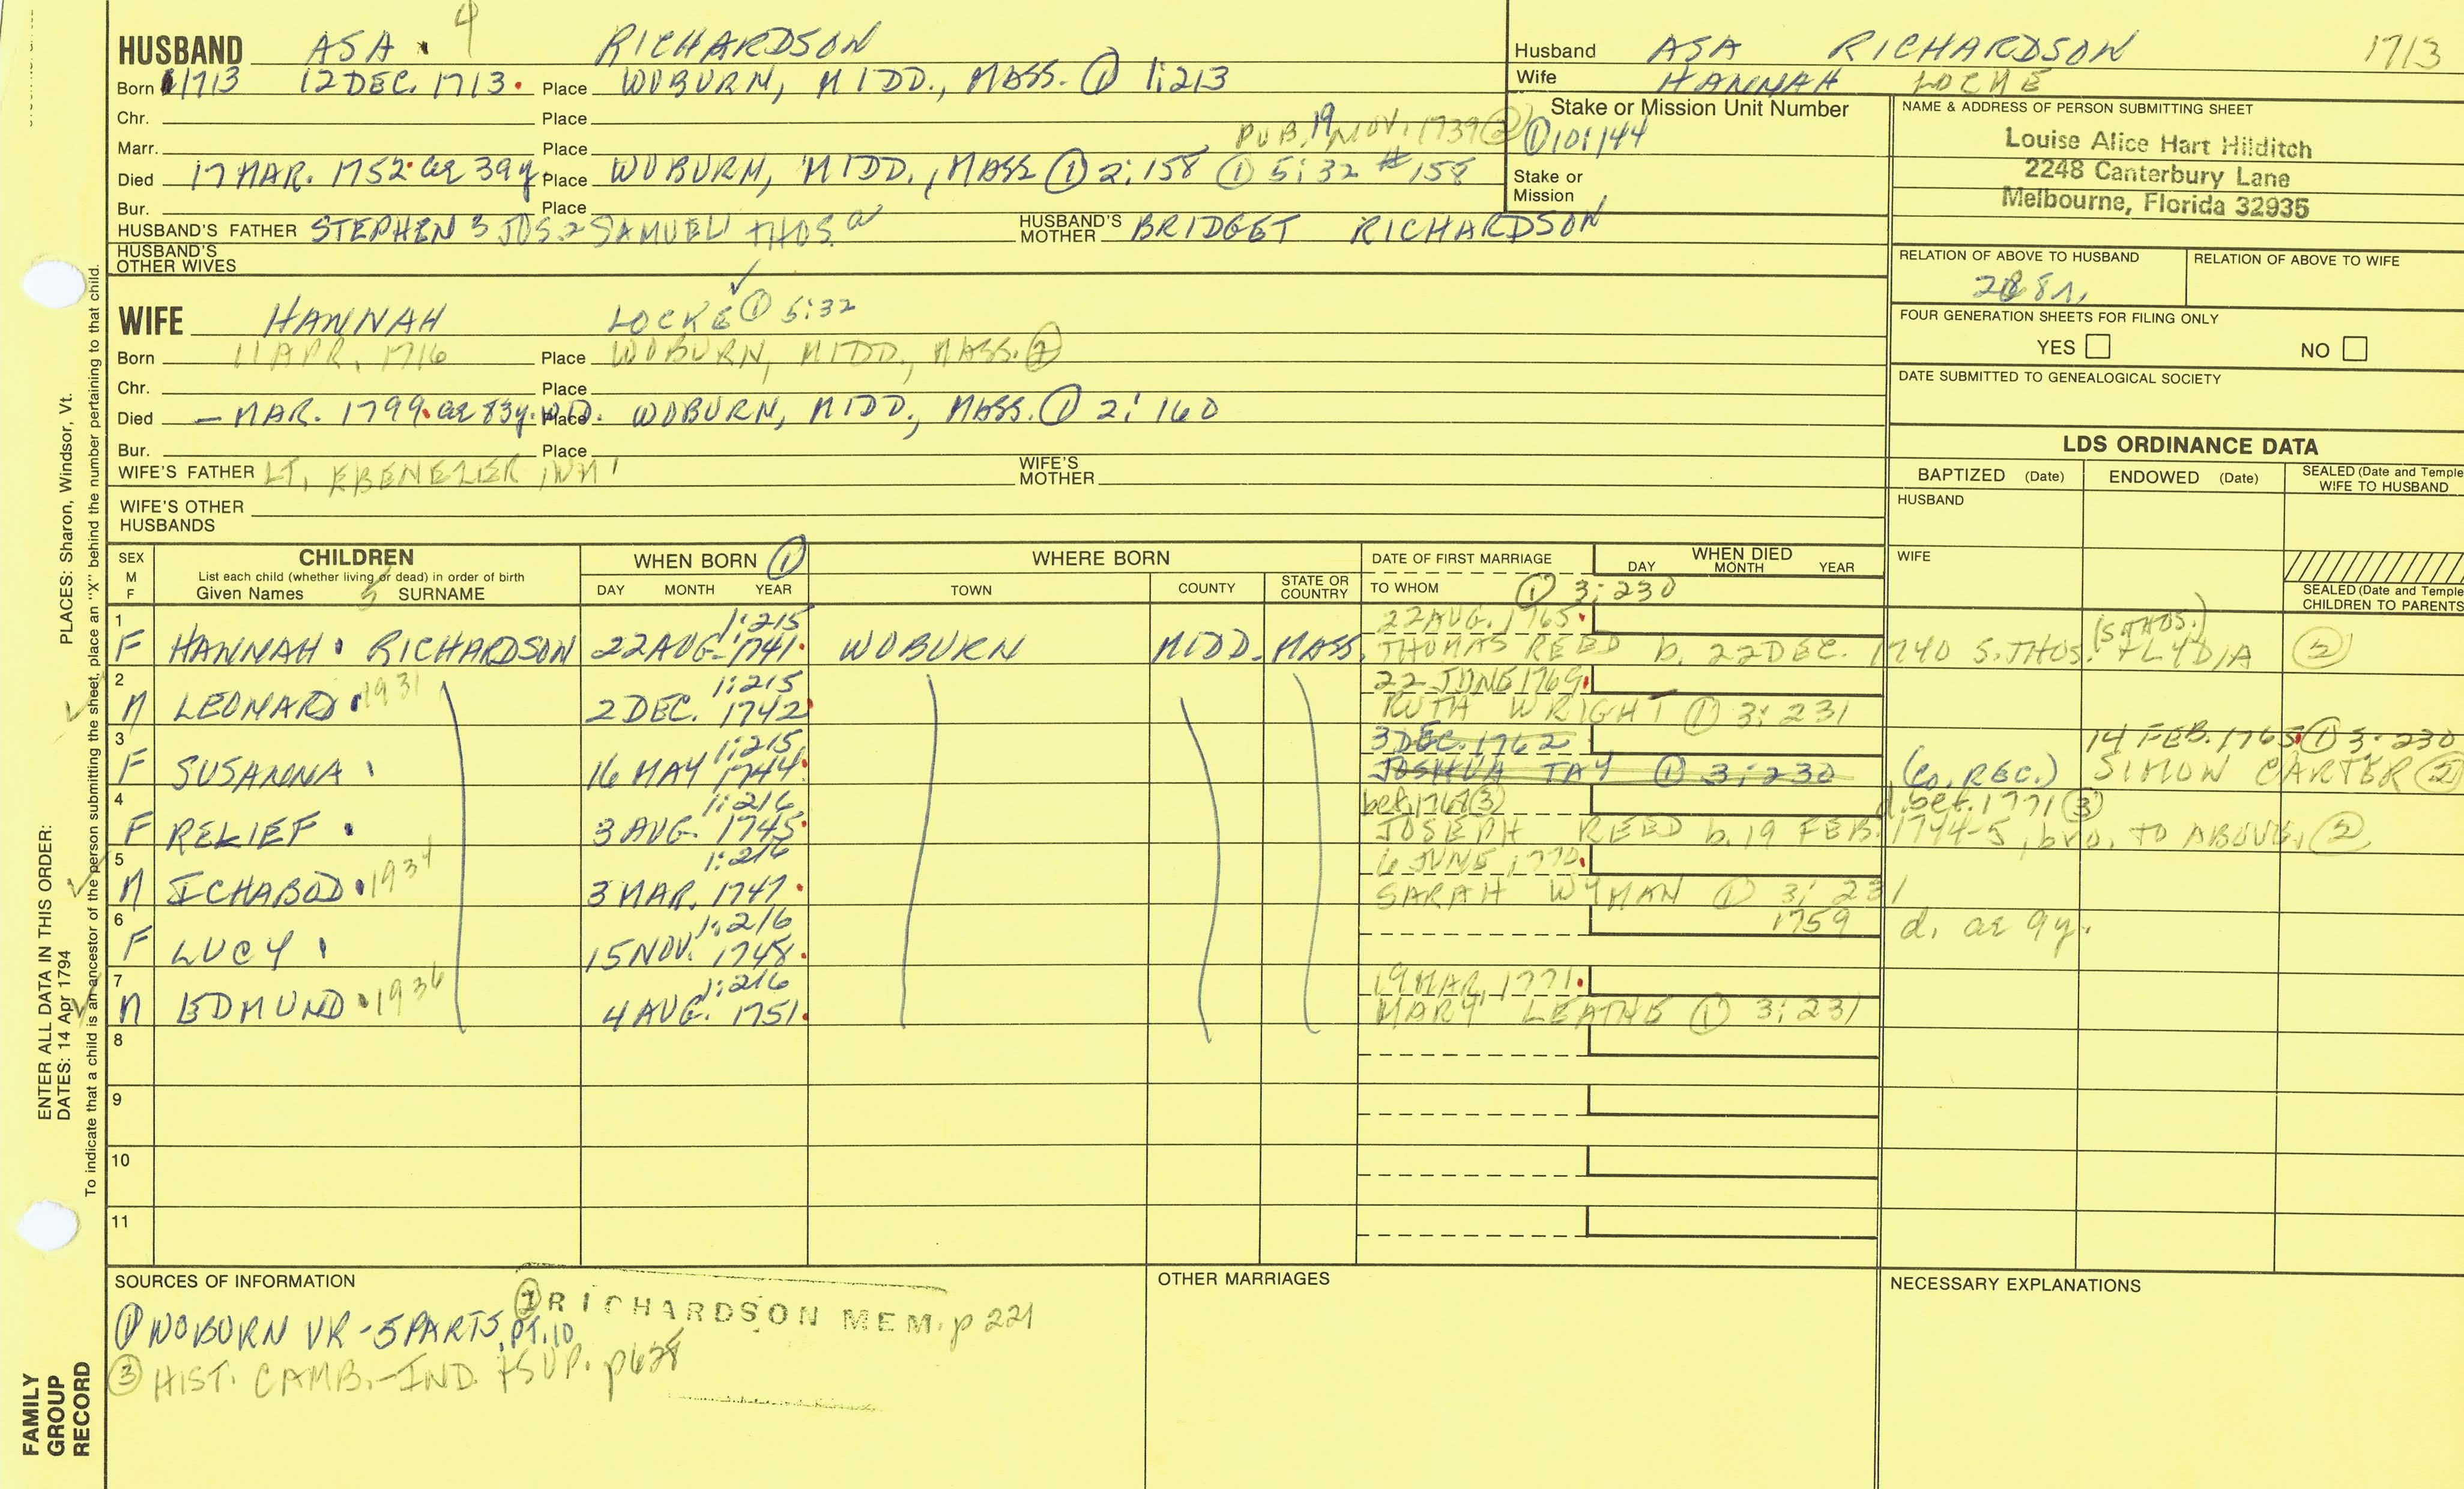 4
HUSBAND ASA RICHARDSON
Born 1713 12 DEC. 1713. Place WOBURN, MIDD., MASS. ① 1:213
Chr. Place
PUB. 19 NOV. 1739 ②
Marr. Place
Died 17 MAR. 1752. ae 39y Place WOBURN, MIDD., MASS ① 2:158 ① 5:32 #158
Bur. Place
HUSBAND'S FATHER STEPHEN 3 JOS 2 SAMUEL THOS. HUSBAND'S MOTHER BRIDGET RICHARDSON
HUSBAND'S OTHER WIVES
Husband ASA RICHARDSON 1713
Wife HANNAH LOCKE
Stake or Mission Unit Number
① 101, 144
Stake or Mission
NAME & ADDRESS OF PERSON SUBMITTING SHEET
Louise Alice Hart Hilditch
2248 Canterbury Lane
Melbourne, Florida 32935
RELATION OF ABOVE TO HUSBAND RELATION OF ABOVE TO WIFE
FOUR GENERATION SHEETS FOR FILING ONLY
YES NO
DATE SUBMITTED TO GENEALOGICAL SOCIETY
WIFE HANNAH LOCKE ① 5:32
Born 11 APR. 1716 Place WOBURN, MIDD., MASS. ②
Chr. Place
Died – MAR. 1799. ae 83y. WID. Place WOBURN, MIDD., MASS. ① 2:160
Bur. Place
WIFE'S FATHER LT. EBENEZER, WM 1 WIFE'S MOTHER
WIFE'S OTHER HUSBANDS
LDS ORDINANCE DATA
BAPTIZED (Date) ENDOWED (Date) SEALED (Date and Temple) WIFE TO HUSBAND
HUSBAND
WIFE
SEALED (Date and Temple) CHILDREN TO PARENTS
SEX M F CHILDREN WHEN BORN ① WHERE BORN DATE OF FIRST MARRIAGE WHEN DIED
List each child (whether living or dead) in order of birth
Given Names 5 SURNAME DAY MONTH YEAR TOWN COUNTY STATE OR COUNTRY TO WHOM ① 3:230 DAY MONTH YEAR
1 1:215 22 AUG. 1765.
F HANNAH RICHARDSON 22 AUG. 1741. WOBURN MIDD. MASS. THOMAS REED b. 22 DEC. 1740 S. THOS. (S. THOS.) + LYDIA ②
2 1:215 22 JUNE 1769.
M LEONARD 1931 2 DEC. 1742 RUTH WRIGHT ① 3:231
3 1:215 3 DEC. 1762 14 FEB. 1765. ① 3:230
F SUSANNA 16 MAY 1744. JOSHUA TAY ① 3:230 (Co. REC.) SIMON CARTER ②
4 1:216 bef. 1768 ③ d. bef. 1771 ③
F RELIEF 3 AUG. 1745. JOSEPH REED b. 19 FEB. 1744-5, bro. TO ABOVE. ②
5 1:216 6 JUNE 1770.
M ICHABOD 1934 3 MAR. 1747. SARAH WYMAN ① 3:231
6 1:216 1759 d. ae 9y.
F LUCY 15 NOV. 1748.
7 1:216 19 MAR. 1771.
M EDMUND 1936 4 AUG. 1751. MARY LEATHE ① 3:231
8
9
10
11
SOURCES OF INFORMATION OTHER MARRIAGES NECESSARY EXPLANATIONS
② RICHARDSON MEM. p 221
① WOBURN VR - 5 PARTS, PT. 10
③ HIST. CAMB. - IND. + SUP. p 628
ENTER ALL DATA IN THIS ORDER:
PLACES: Sharon, Windsor, Vt.
DATES: 14 Apr 1794
To indicate that a child is an ancestor of the person submitting the sheet, place an "X" behind the number pertaining to that child.
FAMILY
GROUP
RECORD